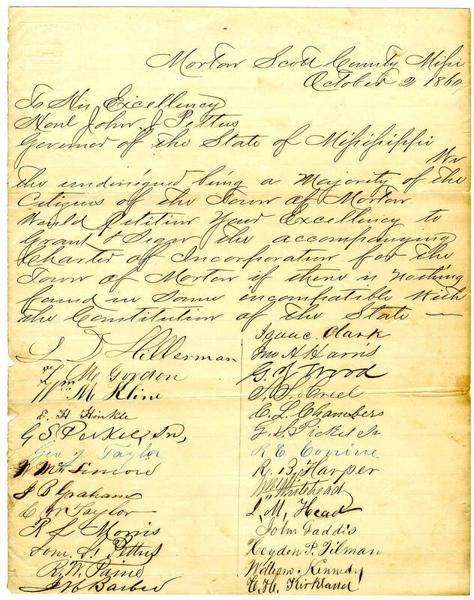 Morton Scott County Missi
October 2 1860
To His Excellency
Honl John. J Pettus
Governor of the State of Mississippi
We
the undersigned being a Majority of the
Citizens of the Town of Morton
Would petition Your Excellency to
Grant & Sign the accompanying
Charter of Incorporation for the
Town of Morton if there is nothing
found in Same incompatible With
the Constitution of the State
Hillerman
Mc Gordon
Wm M Kline
E. H Hinkle
G S Parker, Jr,
Geo J Taylor
W
J B Graham
C W Taylor
R L Morris
Pettus
R. W. Paine
Barber
Isaac. Clark
Jno A Harris
G. J Wood
C. L. Chambers
G. S. Pickel Jr
R E Corrine
R. B, Harper
Wm Whitehead
L. M, Head
John Gaddis
Heyden P. Tilman
Kennedy
C. H. Kirkland